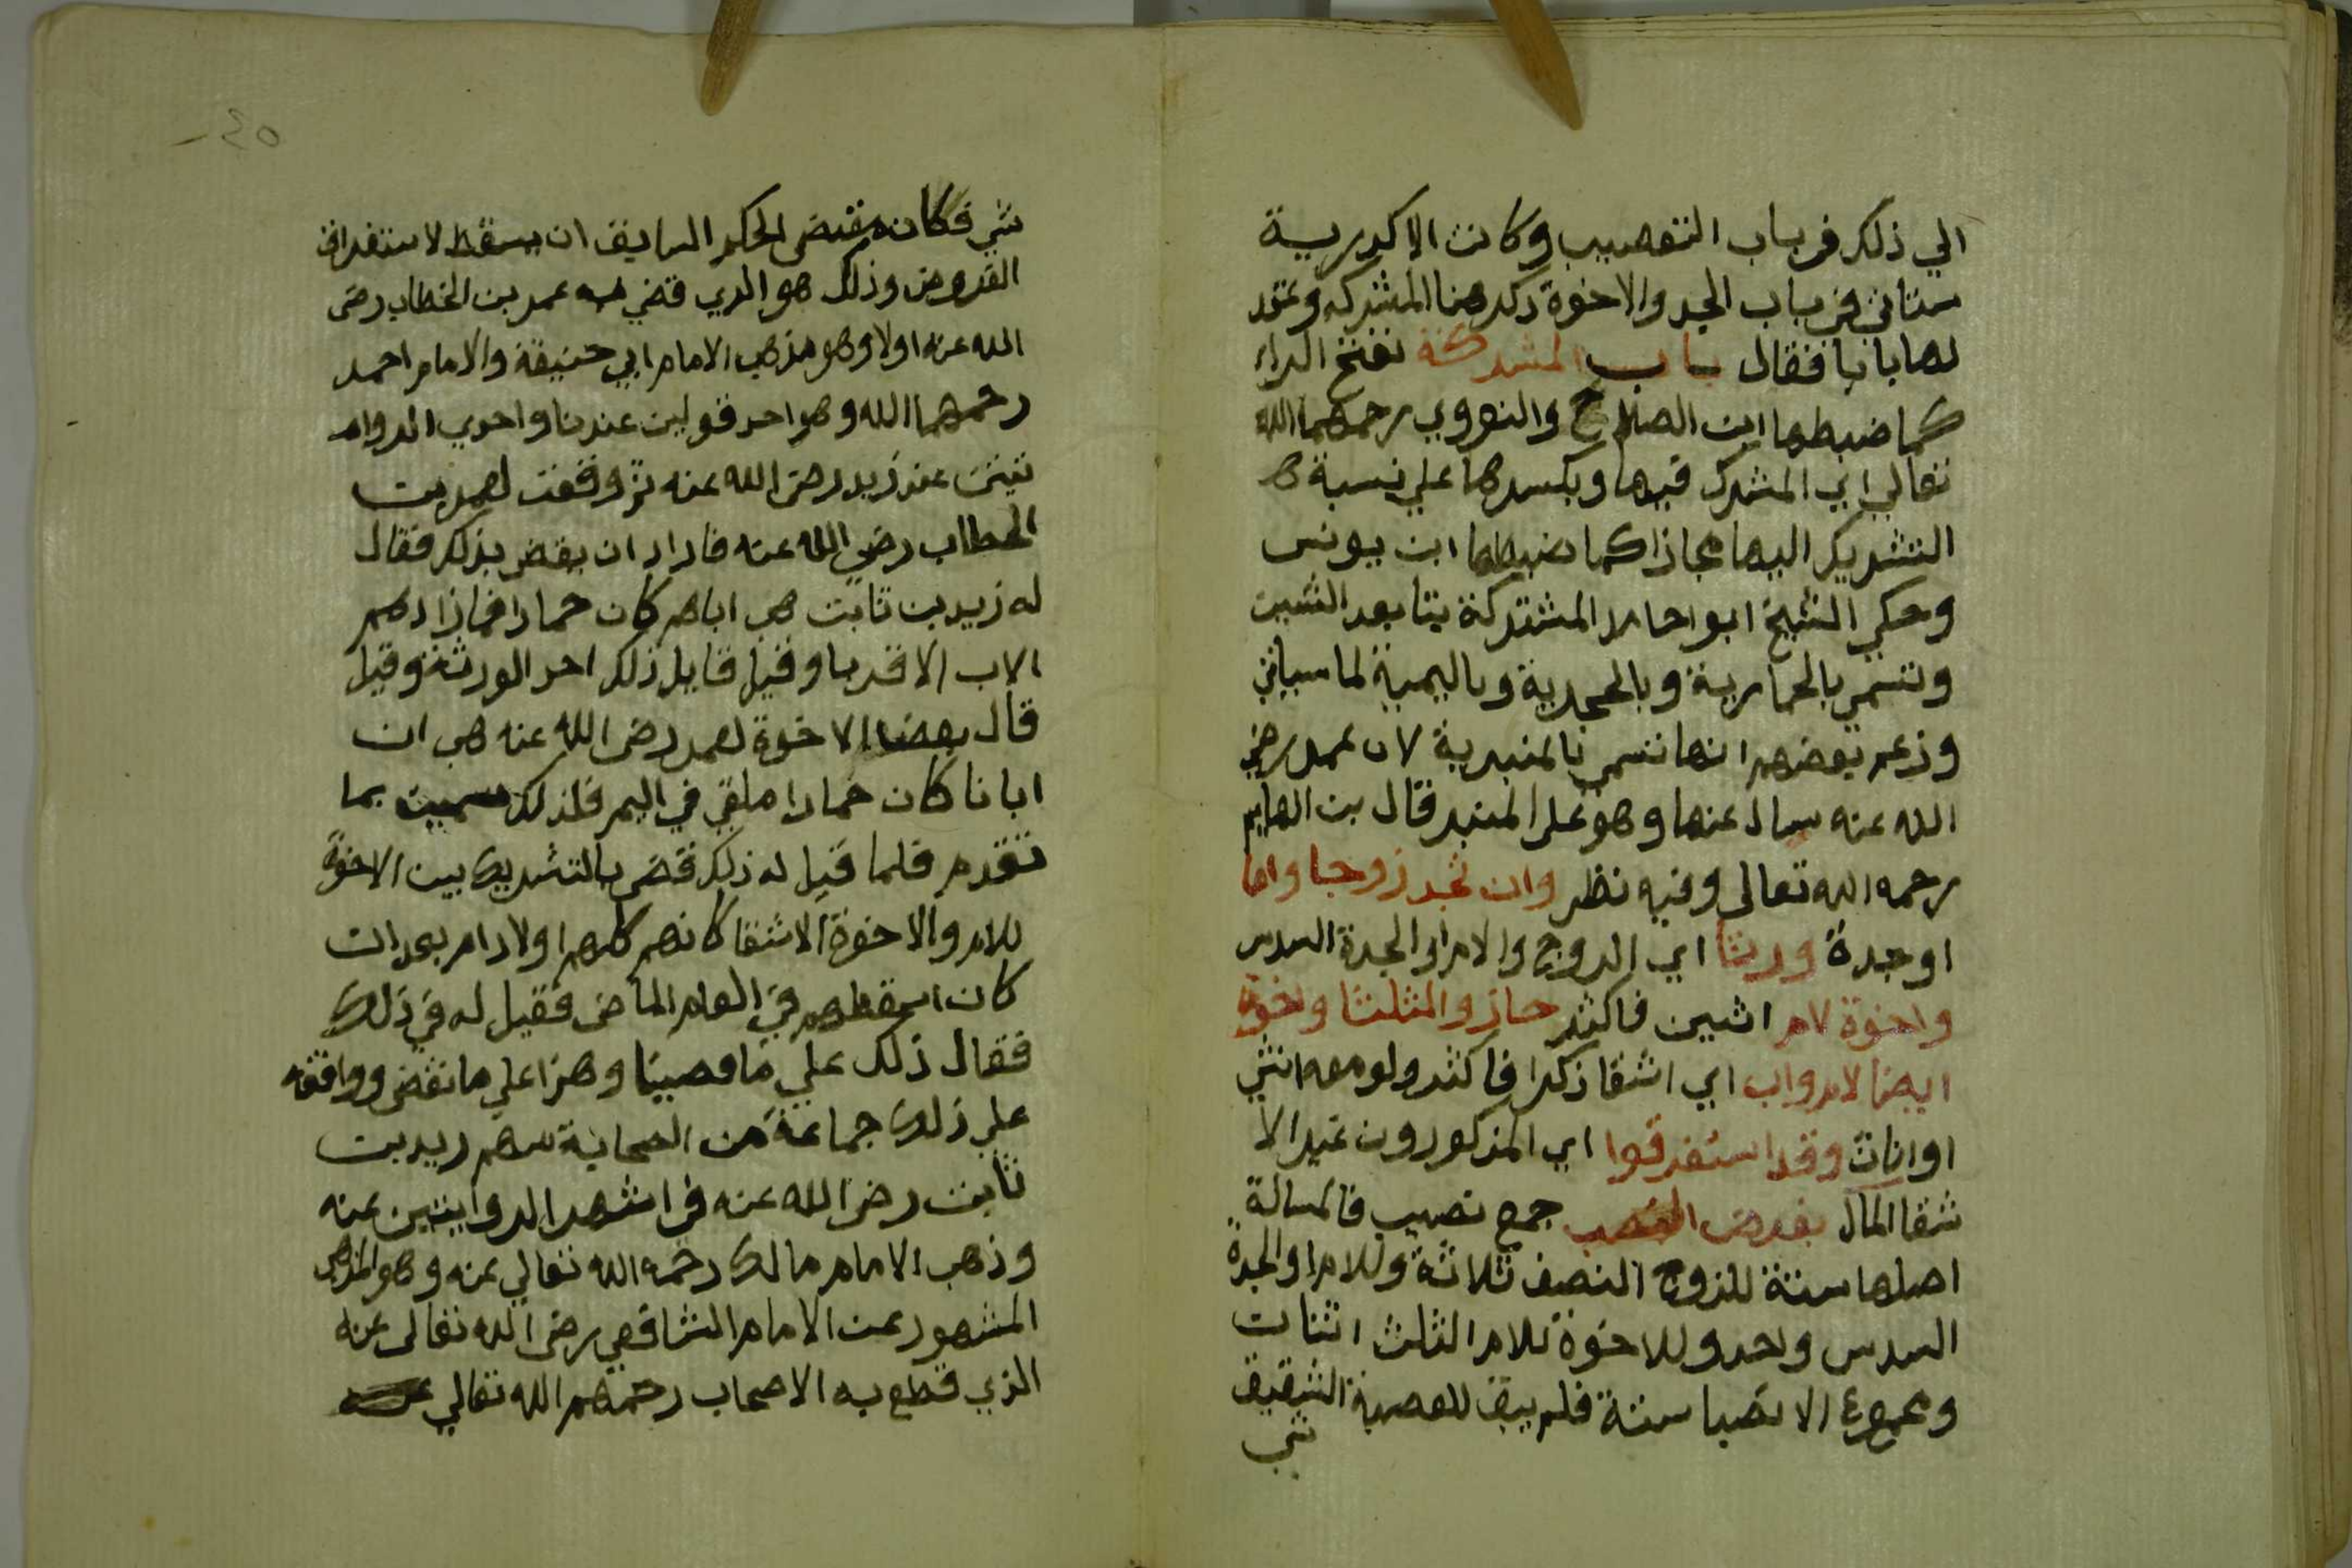 الي ذلك في باب التعصيب وكانت الاكدرية
ستاتي في باب الجد والاخوة ذكر هنا المشركه وعقد
لها بابا فقال باب المشركة بفتح الراء
كما ضبطها ابن الصلاح والنووي رحمهما الله
تعالي اي المشرك فيها وبكسرها علي نسبة
التشريك اليها مجازا كما ضبطها ابن يونس
وحكي الشيخ ابو حامد المشتركة بتا بعد الشين
وتسمي بالحمارية وبالحجرية وباليمية لما سياتي
وزعم بعضهم انها تسمي بالمنبرية لان عمر رضي
الله عنه سال عنها وهو علي المنبر قال بن الهايم
رحمه الله تعالي وفيه نظر وان تجد زوجا واما
او جدة ورثا اي الزوج والام او الجدة السدس
واخوة لام اثنين فاكثر حازو الثلثا واخوة
ايضا لام واب اي اشقا ذكرا فاكثر ولو معه انثي
او اناث وقد استغرقوا اي المذكورون غير الا
شقا المال بفرض النصب جمع نصيب فالمسالة
اصلها ستة للزوج النصف ثلاثة وللام او الجدة
السدس واحد وللاخوة للام الثلث اثنان
ومجموع الانصبا ستة فلم يبق للعصبة الشقيق
شي
٤٥
شي فكان مقتضي الحكم السابق ان يسقط لاستغراق
الفروض وذلك هو الذي قضي به عمر بن الخطاب رضي
الله عنه اولا وهو مذهب الامام ابي حنيفة والامام احمد
رحمهما الله وهو احد قولين عندنا واحدي الروا
يتين عند زيد رضي الله عنه ثم وقعت لعمر بن
الخطاب رضي الله عنه فاراد ان يقضي بذلك فقال
له زيد بن ثابت هب اباهم كان حمارا فما زادهم
الاب الا قربا وقيل قايل ذلك احد الورثة وقيل
قال بعض الاخوة لعمر رضي الله عنه هب ان
ابانا كان حمارا ملقي في اليم فلذلك سميت بما
تقدم فلما قيل له ذلك قضي بالتشريك بين الاخوة
للام والاخوة الاشقا كانهم كلهم اولاد ام بعد ان
كان اسقطهم في العام الماضي فقيل له في ذلك
فقال ذلك علي ما قضينا وهذا علي ما نقضي ووافقه
علي ذلك جماعة من الصحابة منهم زيد بن
ثابت رضي الله عنه في اشهر الروايتين عنه
وذهب الامام مالك رحمه الله تعالي عنه وهو المذهب
المشهور عن الامام الشافعي رضي الله تعالي عنه
الذي قطع به الاصحاب رحمهم الله تعالي